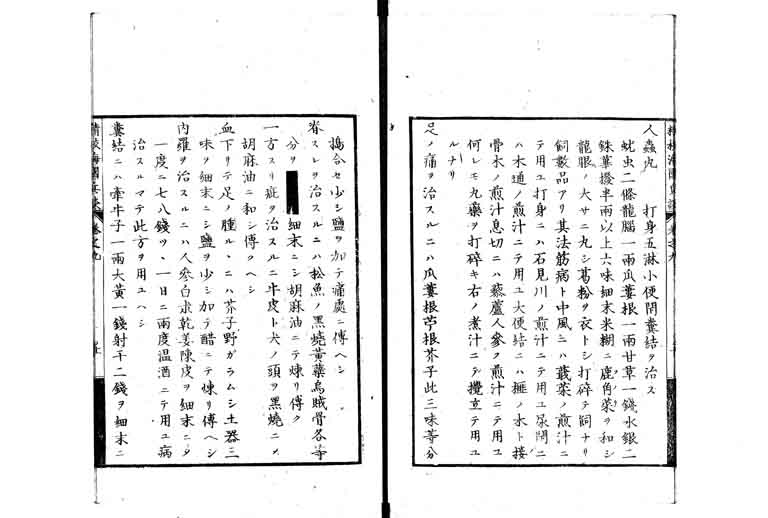 人蟲丸　打身五淋小便閉糞結ヲ治ス
蚘虫二條龍腦一兩瓜蔞根一兩甘草一錢水銀二
銖葦撥半兩以上六味細末米糊ニ鹿角菜ヲ和シ
龍眼ノ大サニ丸シ葛粉ヲ衣トシ打碎テ飼ナリ
飼數品アリ其法筋病ト中風ニハ蕺菜ノ煎汁ニ
テ用ユ打身ニハ石見川ノ煎汁ニテ用ユ尿閉ニ
ハ木通ノ煎汁ニテ用ユ大便結ニハ榧ノ木ト接
骨木ノ煎汁息切ニハ藜蘆人參ノ煎汁ニテ用ユ
何レモ丸藥ヲ打碎キ右ノ煮汁ニテ攪立テ用ユ
ルナリ
足ノ痛ヲ治スルニハ瓜蔞根芍根芥子此三味等分
搗合セ少シ鹽ヲ加テ痛處ニ傳ヘシ
脊スレヲ治スルニハ松魚ノ黑燒黃蘗烏賊骨各等
分ヲ細末ニシ胡麻油ニテ煉リ傳ク
一方スリ疵ヲ治スルニ牛皮ト犬ノ頭ヲ黑燒ニメ
胡麻油ニ和シ傳クヘシ
血下リテ足ノ腫ルヽニハ芥子野ガラムシ土器三
味ヲ細末ニシ鹽ヲ少シ加テ醋ニテ煉リ傳ヘシ
內羅ヲ治スルニハ人參白朮乾姜陳皮ヲ細末ニメ
一度ニ七八錢ツヽ一日ニ兩度温酒ニテ用ユ病
治スルマテ此方ヲ用ユヘシ
糞結ニハ牽牛子一兩大黃一錢射干二錢ヲ細末ニ
卷之九